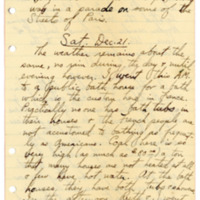 way in a parade on some of the
Streets of Paris.
Sat. Dec. 21.
The weather remains about the
same, no rain during the day or until
evening however. I went this A.M.
to a public bath house for a bath
which is the custom here in France.
Practically no one has bath tubs in
their houses & the French people are
not accustomed to bathing as frequent
ly as Americans. Coal here is so
very high, as much as
that many houses are not heated at all
& few have hot water. At the bath
houses, they have both tubs